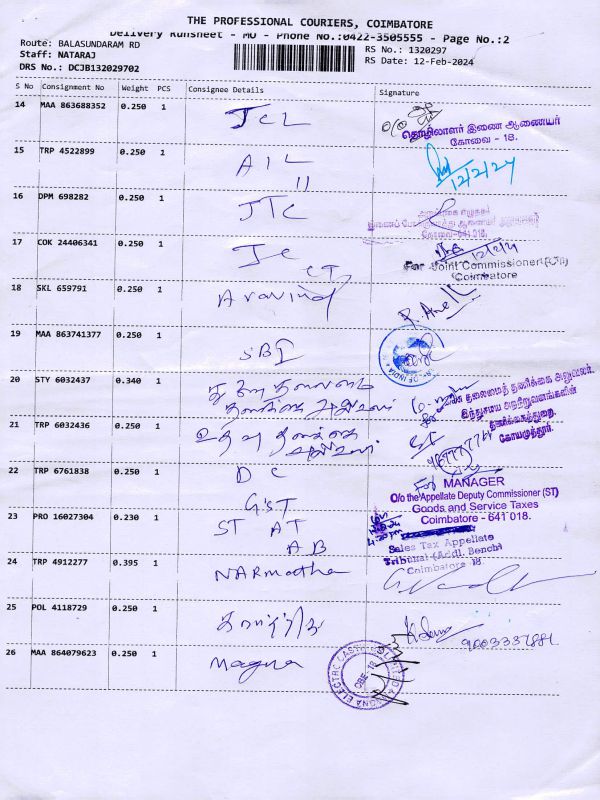 THE PROFESSIONAL COURIERS, COIMBATORE
Delivery Runsheet - MU - Phone No.:0422-3505555 - Page No.:2
Route: BALASUNDARAM RD
RS No.: 1320297
Staff: NATARAJ
RS Date: 12-Feb-2024
DRS No.: DCJB132029702
S No Consignment No Weight PCS Consignee Details Signature
14 MAA 863688352 0.250 1 JCL
தொழிலாளர் இணை ஆணையர்
கோவை - 18.
15 TRP 4522899 0.250 1 AIL
11
12/2/24
16 DPM 698282 0.250 1 JTC
கோவை-641 018.
17 COK 24406341 0.250 1 JC
CT
12/2/24
For Joint Commissioner (CT)
Coimbatore
18 SKL 659791 0.250 1 Aravind
19 MAA 863741377 0.250 1 SBI
OF INDIA
20 STY 6032437 0.340 1
தலைமைத் தணிக்கை அலுவலர்,
இந்துசமய அறநிறுவனங்களின்
தணிக்கைத்துறை,
கோயமுத்தூர்.
21 TRP 6032436 0.250 1 உதவி தணிக்கை
22 TRP 6761838 0.250 1 DC
GST
For MANAGER
O/o the Appellate Deputy Commissioner (ST)
Goods and Service Taxes
Coimbatore - 641 018.
23 PRO 16027304 0.230 1 ST AT
AB
Sales Tax Appellate
Tribunal (Addl. Bench)
Coimbatore 18
24 TRP 4912277 0.395 1 NARmatha
25 POL 4118729 0.250 1
26 MAA 864079623 0.250 1 Magna
MAGNA ELECTRO CASTINGS LIMITED
CBE-18